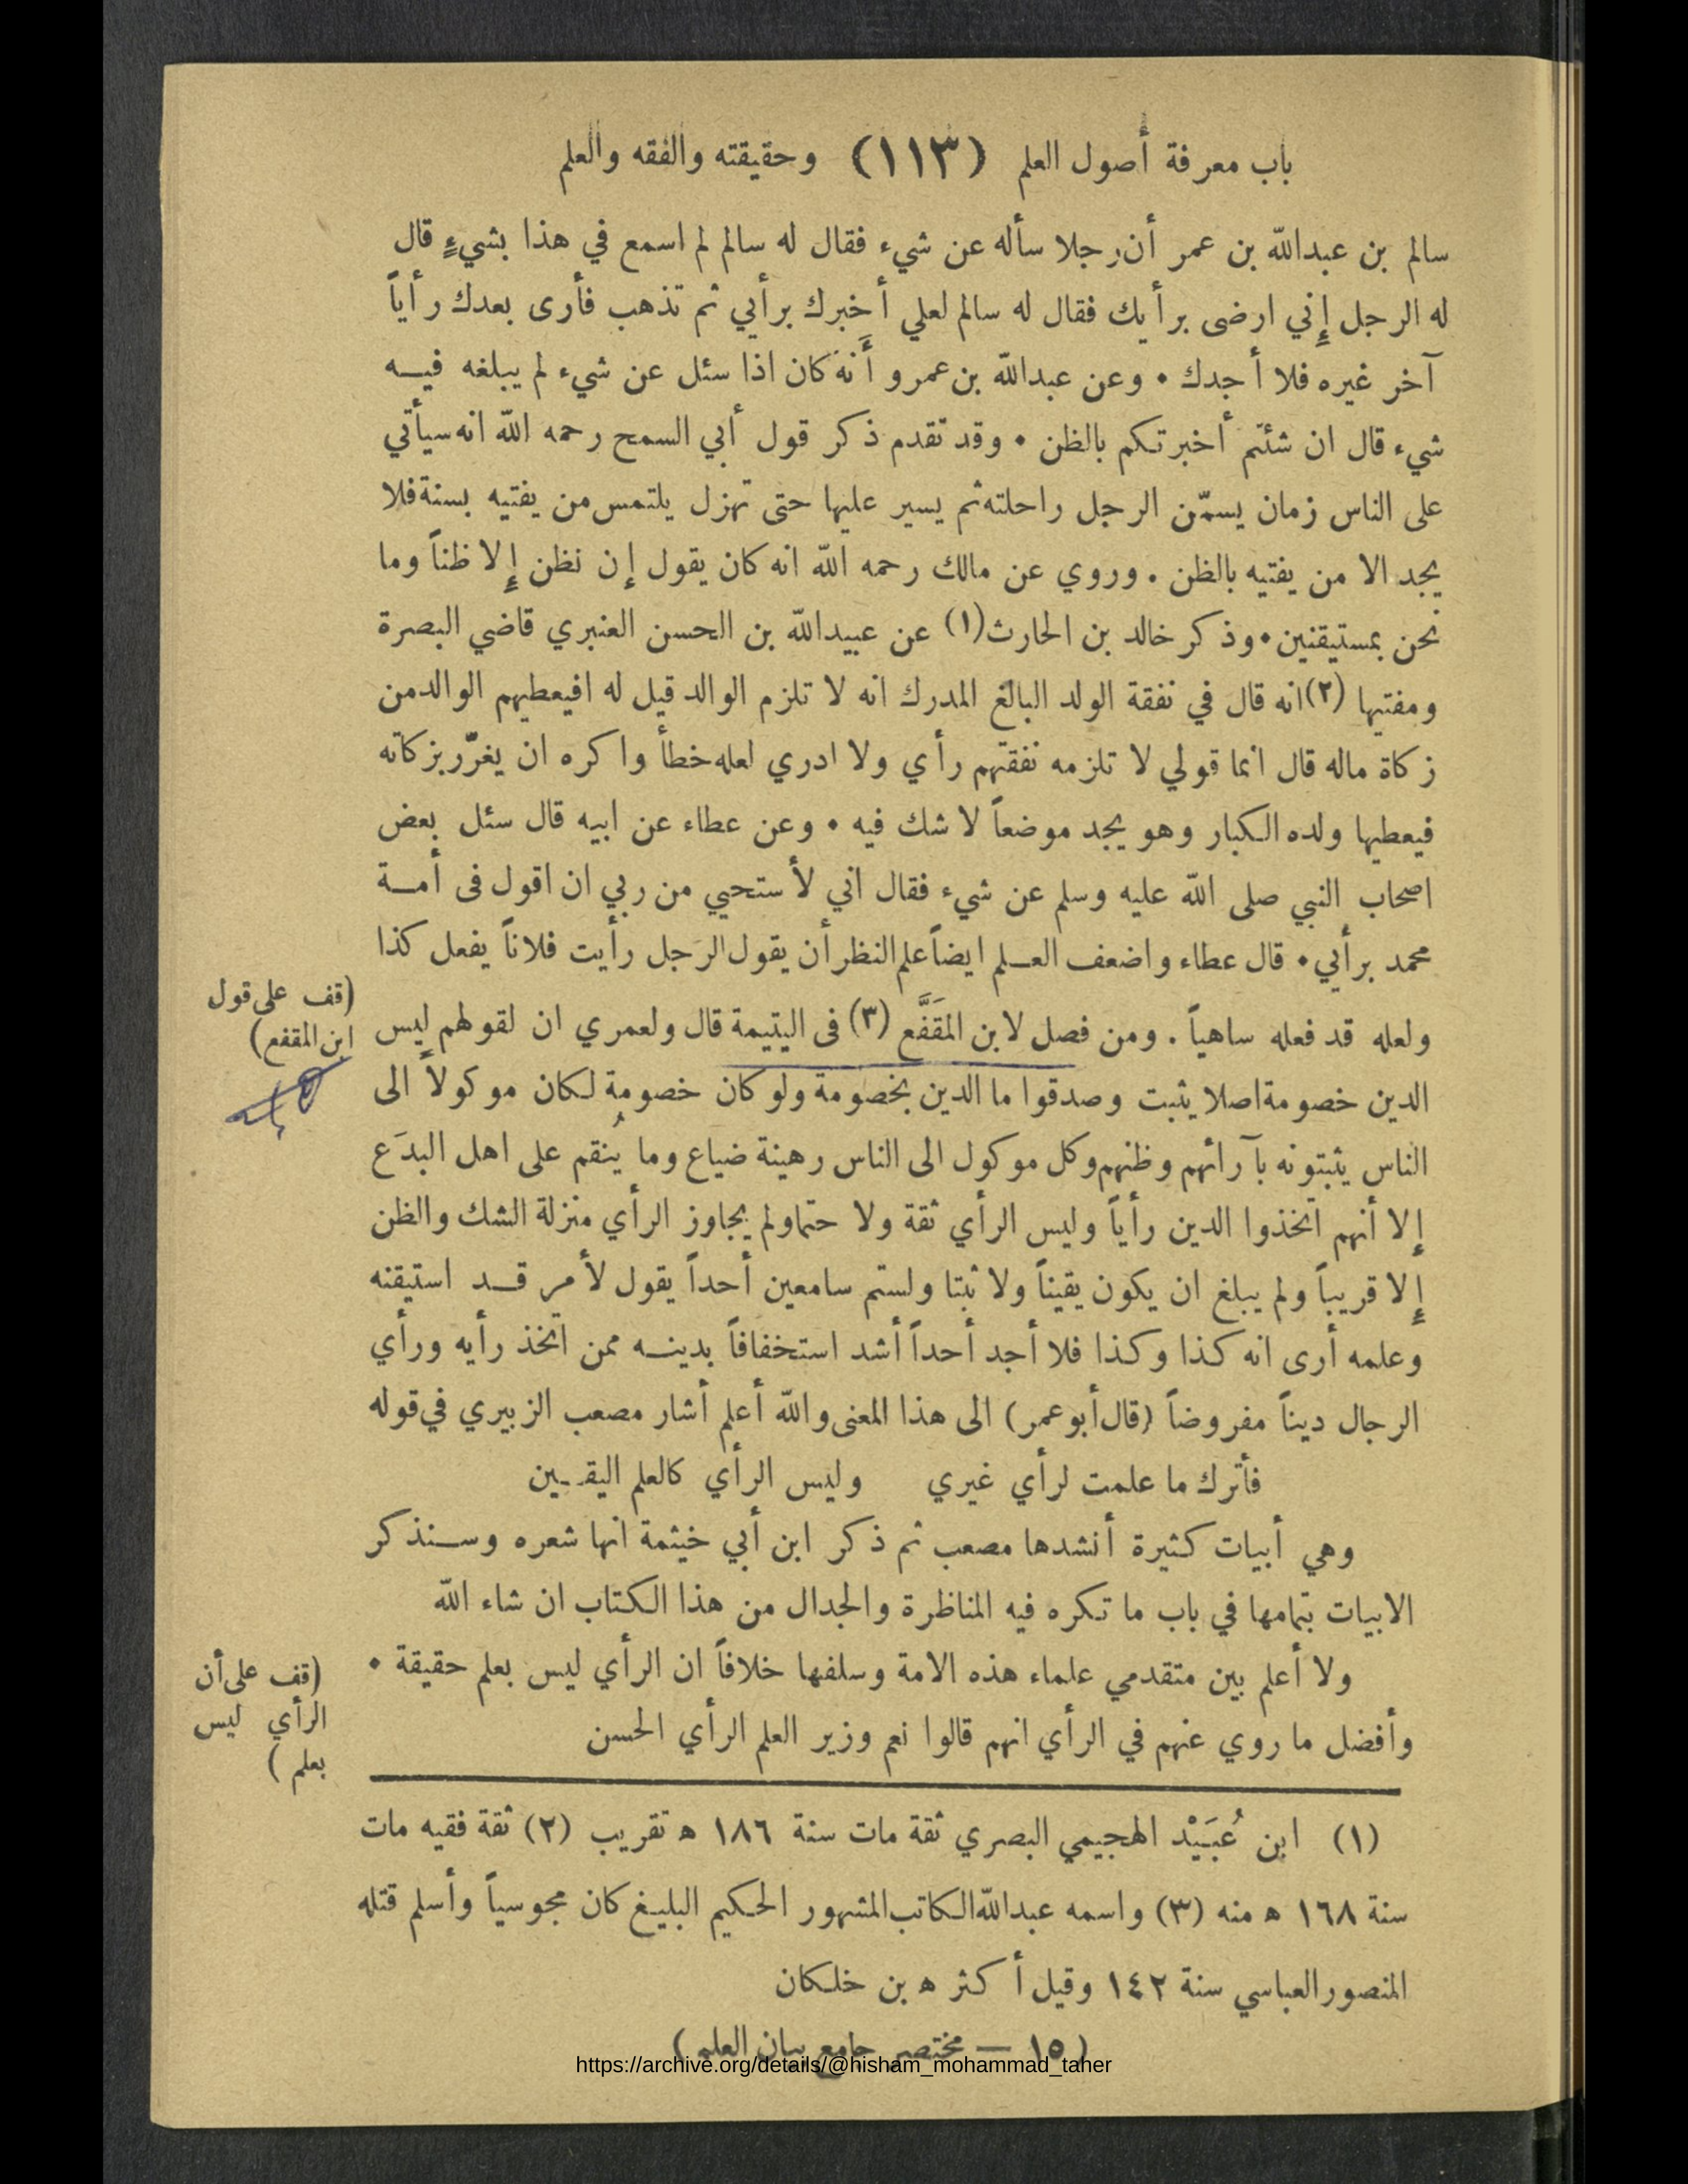 باب معرفة أصول العلم (١١٣) وحقيقته والفقه والعلم
سالم بن عبدالله بن عمر أن رجلا سأله عن شيء فقال له سالم لم اسمع في هذا بشيءٍ قال
له الرجل إِني ارضى برأيك فقال له سالم لعلي أخبرك برأيي ثم تذهب فأرى بعدك رأياً
آخر غيره فلا أجدك ٠ وعن عبدالله بن عمرو أَنه كان اذا سئل عن شيء لم يبلغه فيه
شيء قال ان شئتم أخبرتكم بالظن ٠ وقد تقدم ذكر قول أبي السمح رحمه الله انه سيأتي
على الناس زمان يسمّن الرجل راحلته ثم يسير عليها حتى تهزل يلتمس من يفتيه بسنة فلا
يجد الا من يفتيه بالظن . وروي عن مالك رحمه الله انه كان يقول إن نظن إِلا ظناً وما
نحن بمستيقنين ٠ وذكر خالد بن الحارث (١) عن عبيدالله بن الحسن العنبري قاضي البصرة
ومفتيها (٢) انه قال في نفقة الولد البالغ المدرك انه لا تلزم الوالد قيل له افيعطيهم الوالد من
زكاة ماله قال انما قولي لا تلزمه نفقتهم رأي ولا ادري لعله خطأ واكره ان يغرّر بزكاته
فيعطيها ولده الكبار وهو يجد موضعاً لا شك فيه ٠ وعن عطاء عن ابيه قال سئل بعض
اصحاب النبي صلى الله عليه وسلم عن شيء فقال اني لأستحيي من ربي ان اقول فى أمة
محمد برأيي ٠ قال عطاء واضعف العلم ايضاً علم النظر أن يقول الرجل رأيت فلاناً يفعل كذا
(قف على قول
ابن المقفع)
ولعله قد فعله ساهياً . ومن فصل لابن المقَفَّع (٣) فى اليتيمة قال ولعمري ان لقولهم ليس
الدين خصومة اصلا يثبت وصدقوا ما الدين بخصومة ولو كان خصومة لكان موكولاً الى
الناس يثبتونه بآرائهم وظنهم وكل موكول الى الناس رهينة ضياع وما يُنقم على اهل البدَع
إِلا أنهم اتخذوا الدين رأياً وليس الرأي ثقة ولا حتما ولم يجاوز الرأي منزلة الشك والظن
إِلا قريباً ولم يبلغ ان يكون يقيناً ولا ثبتا ولستم سامعين أحداً يقول لأمر قد استيقنه
وعلمه أرى انه كذا وكذا فلا أجد أحداً أشد استخفافاً بدينه ممن اتخذ رأيه ورأي
الرجال ديناً مفروضاً (قال أبو عمر) الى هذا المعنى والله أعلم أشار مصعب الزبيري في قوله
فأترك ما علمت لرأي غيري وليس الرأي كالعلم اليقين
وهي أبيات كثيرة أنشدها مصعب ثم ذكر ابن أبي خيثمة انها شعره وسنذكر
الابيات بتمامها في باب ما تكره فيه المناظرة والجدال من هذا الكتاب ان شاء الله
ولا أعلم بين متقدمي علماء هذه الامة وسلفها خلافاً ان الرأي ليس بعلم حقيقة ٠
وأفضل ما روي عنهم في الرأي انهم قالوا نعم وزير العلم الرأي الحسن
(قف على أن
الرأي ليس
بعلم )
(١) ابن عُبَيْد الهجيمي البصري ثقة مات سنة ١٨٦ ه تقريب (٢) ثقة فقيه مات
سنة ١٦٨ ه منه (٣) واسمه عبدالله الكاتب المشهور الحكيم البليغ كان مجوسياً وأسلم قتله
المنصور العباسي سنة ١٤٢ وقيل أكثر ه بن خلكان
(١٥ — مختصر جامع بيان العلم)
https://archive.org/details/@hisham_mohammad_taher